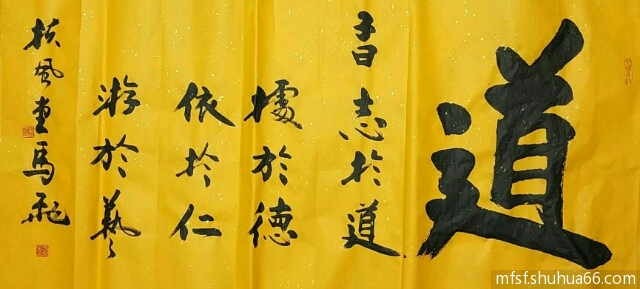 道
子曰志於道
據於德
依於仁
游於藝
扶風堂馬飛
mfsf.shuhua66.com